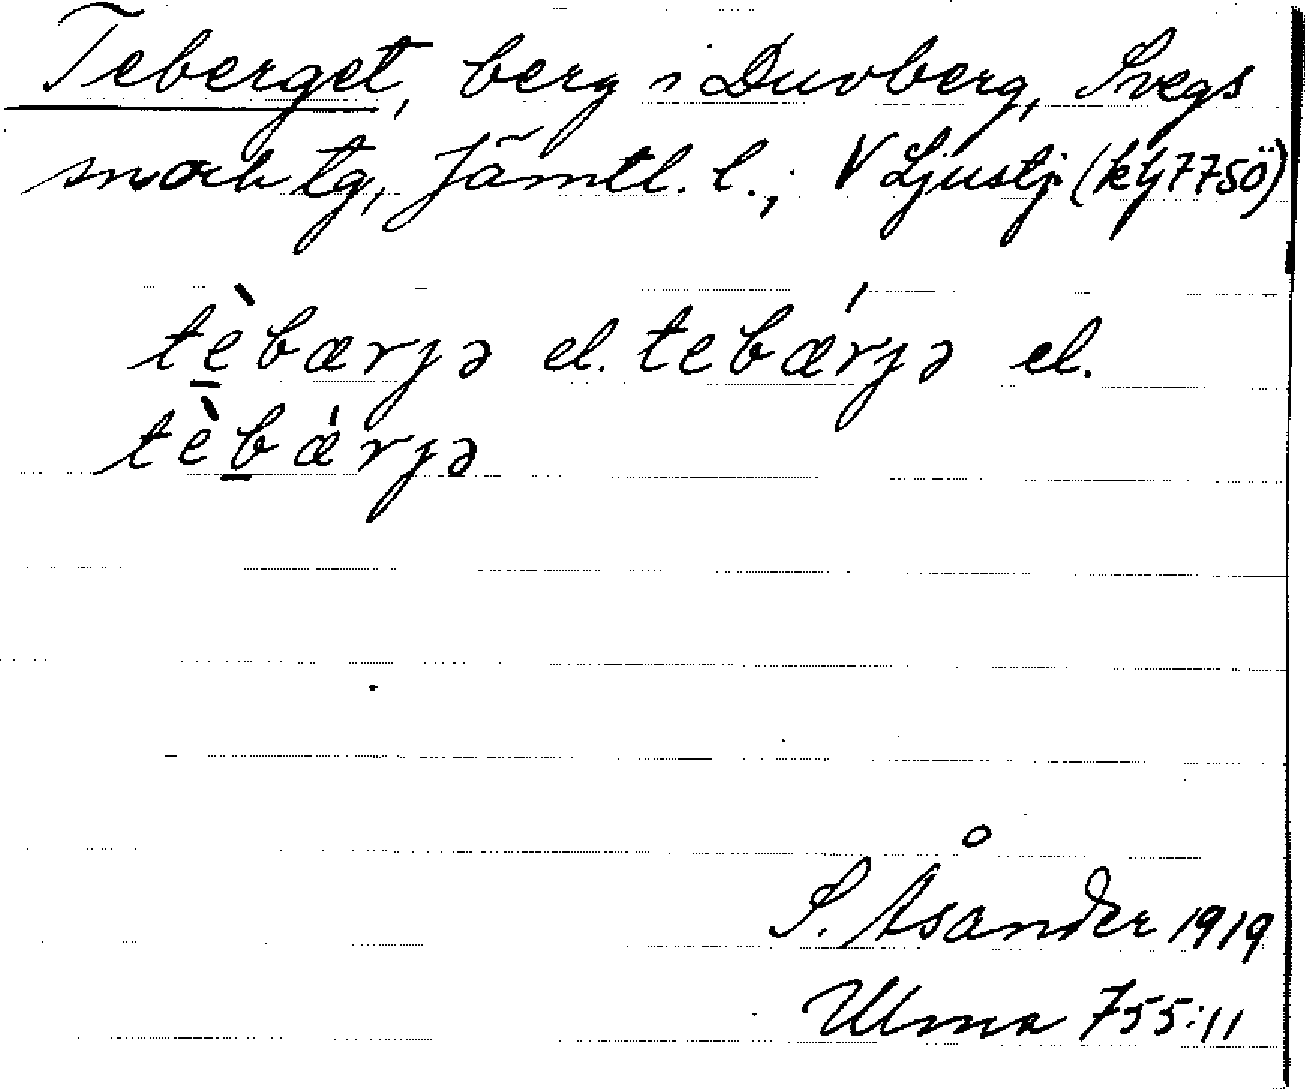 Teberget, berg i Duvberg, Svegs
sn och tg, Jämtl. l., V Ljustj. (kt 775Ö)
tèbærjə el. tebǽrjə el.
tèbǽrjə
S. Åsander 1919
Ulma 755:11